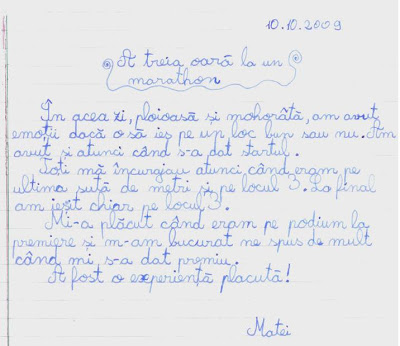 10.10.2009
A treia oară la un
marathon
În acea zi, ploioasă și mohorâtă, am avut
emoții dacă o să ies pe un loc bun sau nu. Am
avut și atunci când s-a dat startul.
Toți mă încurajau atunci când eram pe
ultima sută de metri și pe locul 3. La final
am ieșit chiar pe locul 3.
Mi-a plăcut când eram pe podium la
premiere și m-am bucurat ne spus de mult
când mi s-a dat premiu.
A fost o experiență placută!
Matei